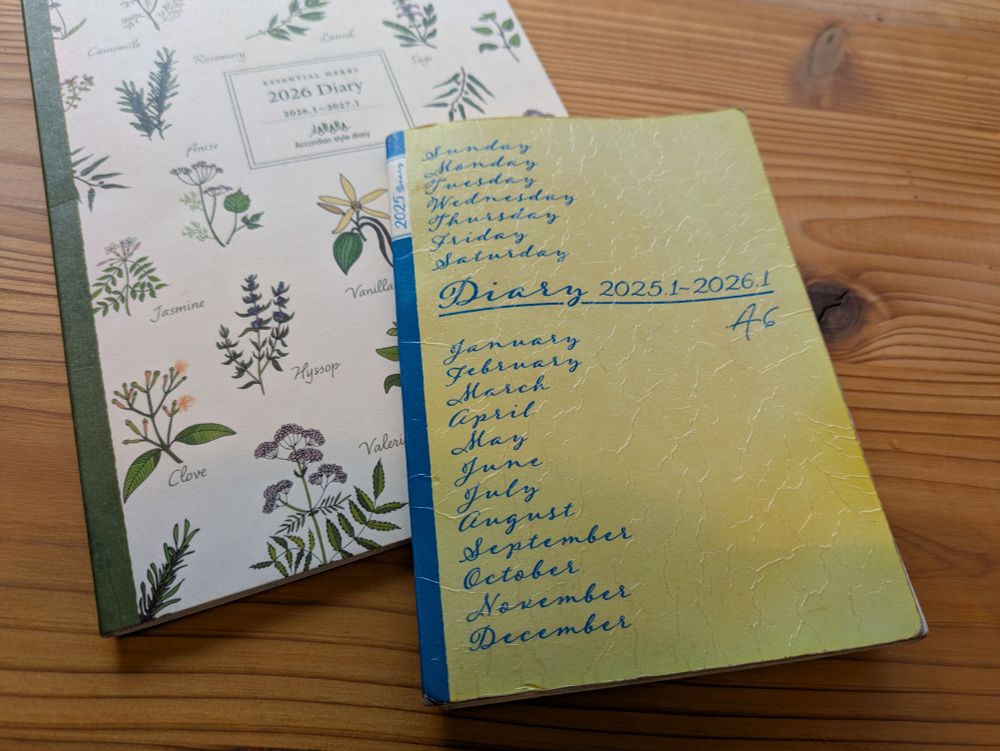 Camomile
Rosemary
Laurel
Sage
ESSENTIAL HERBS
2026 Diary
2026.1–2027.1
JABARA
Accordion style diary
Anise
Jasmine
Vanilla
Hyssop
Clove
Valeri
2025 Diary
Sunday
Monday
Tuesday
Wednesday
Thursday
Friday
Saturday
Diary 2025.1~2026.1
A6
January
February
March
April
May
June
July
August
September
October
November
December